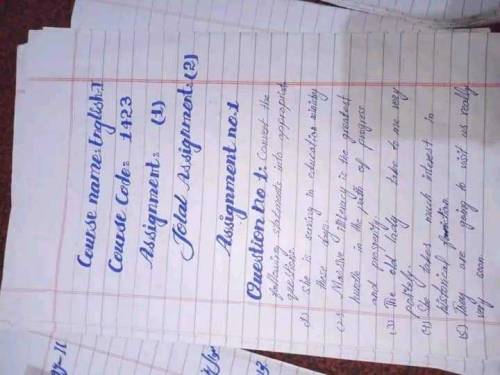 Course name: English-I
Course Code: 1423
Assignment: (1)
Total Assignment: (2)
Assignment no.1
Question no 1: Convert the
following statements into appropriate
questions.
She is serving in education ministry
these days.
Massive illiteracy is the greatest
hurdle in the path of progress
and prosperity
(3) The old lady talks to me very
politely.
(4) She takes much interest in
historical
(5) They are going to visit us really
very soon.